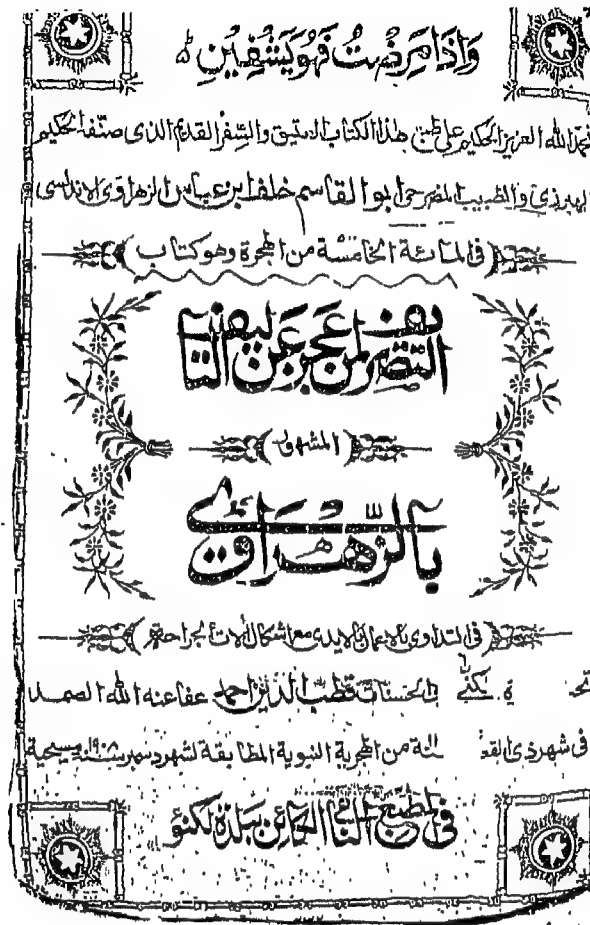 وَإِذَا مَرِضْتُ فَهُوَ يَشْفِينِ
نحمد الله العزيز الحكيم على طبع هذا الكتاب الانيق والسفر القديم الذى صنفه الحكيم
والطبيب ابو القاسم خلف ابن عباس الزهراوى الاندلسى
(فى المائة الخامسة من الهجرة وهو كتاب)
التصريف لمن عجز عن التاليف
(المشهور)
بالزهراوى
(فى التداوى بالاعمال بالايدى مع اشكال الات الجراحة)
قطب الدين احمد عفا عنه الله الصمد
فى شهر ذى من الهجرية النبوية المطابقة لشهر دسمبر سنة ١٩٠٨ مسيحية
فى المطبع النامى ببلدة لكنؤ